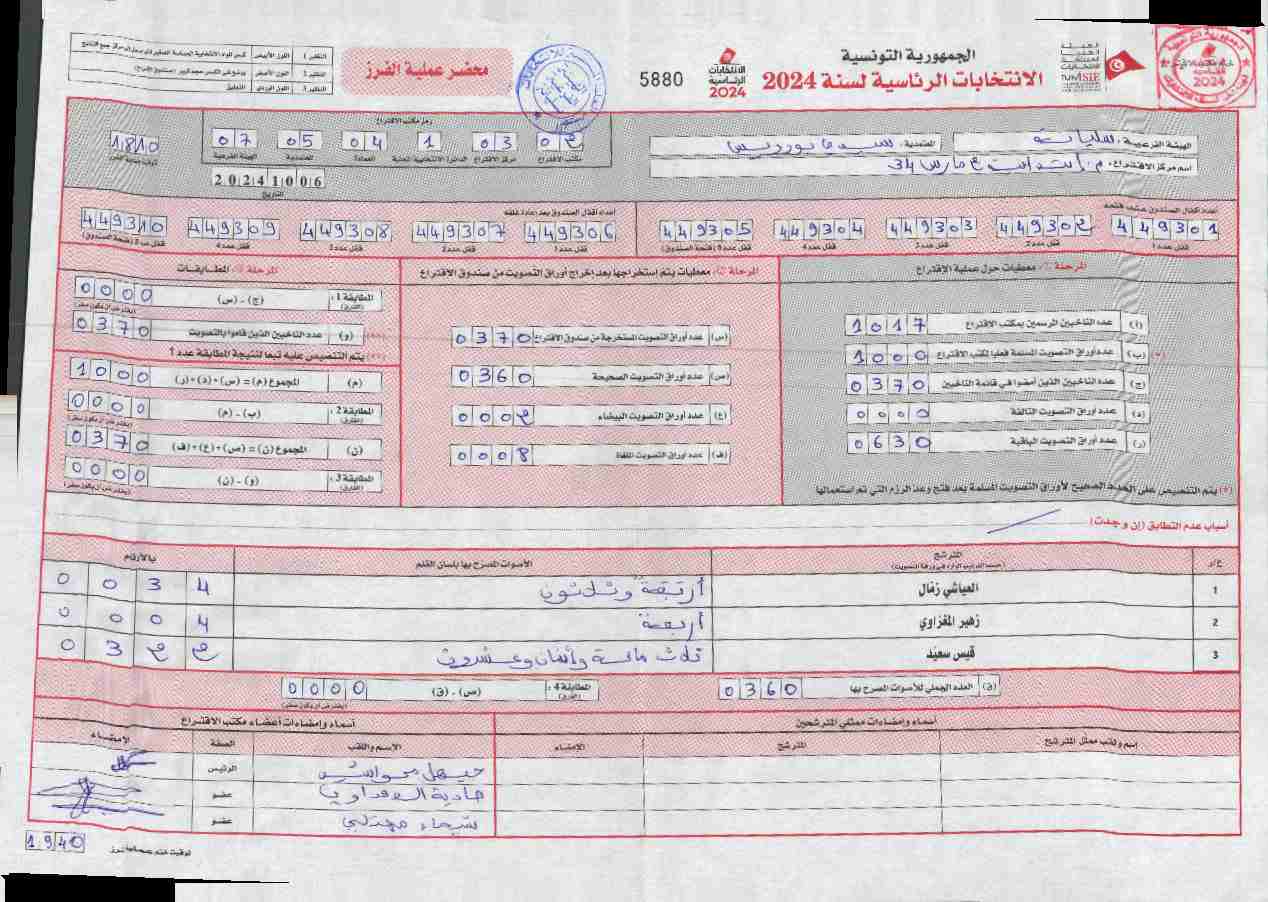 الجمهورية التونسية
الانتخابات الرئاسية لسنة 2024
الانتخابات الرئاسية 2024
5880
محضر عملية الفرز
النظير 1 اللون الأبيض
النظير 2 اللون الأصفر
النظير 3 اللون الوردي للتعليق
الهيئة الفرعية: سليانة
المعتمدية: سيدي بورويس
اسم مركز الاقتراع: م. إبتدائية 4 مارس 34
رمز مكتب الاقتراع
02 03 1 04 05 07
مكتب الاقتراع مركز الاقتراع الدائرة الانتخابية المحلية العمادة المعتمدية الهيئة الفرعية
20241006
التاريخ
1810
أعداد أقفال الصندوق حسب فتحه
449301 449302 449303 449304 449305
قفل عدد 1 قفل عدد 2 قفل عدد 3 قفل عدد 4 قفل عدد 5 (فتحة الصندوق)
أعداد أقفال الصندوق بعد إعادة غلقه
449306 449307 449308 449309 449310
قفل عدد 1 قفل عدد 2 قفل عدد 3 قفل عدد 4 قفل عدد 5 (فتحة الصندوق)
المرحلة 1: معطيات حول عملية الاقتراع
(أ) عدد الناخبين المرسمين بمكتب الاقتراع 1017
(ب) عدد أوراق التصويت المسلمة فعليا لمكتب الاقتراع 1000 (*)
(ج) عدد الناخبين الذين أمضوا في قائمة الناخبين 0370
(د) عدد أوراق التصويت التالفة 0000
(ر) عدد أوراق التصويت الباقية 0630
(*) يتم التنصيص على العدد الصحيح لأوراق التصويت المسلمة بعد فتح وعد الرزم التي تم استعمالها
المرحلة 2: معطيات يتم استخراجها بعد إخراج أوراق التصويت من صندوق الاقتراع
(س) عدد أوراق التصويت المستخرجة من صندوق الاقتراع 0370
(ص) عدد أوراق التصويت الصحيحة 0360
(ع) عدد أوراق التصويت البيضاء 0002
(ف) عدد أوراق التصويت الملغاة 0008
المرحلة 3: المطابقات
المطابقة 1: (الفارق) (ج) - (س) 0000
(يفترض أن يكون صفر)
(و) عدد الناخبين الذين قاموا بالتصويت 0370
(**) يتم التنصيص عليه تبعا لنتيجة المطابقة عدد 1
(م) المجموع (م) = (س) + (د) + (ر) 1000
المطابقة 2: (الفارق) (ب) - (م) 0000
(يفترض أن يكون صفر)
(ن) المجموع (ن) = (ص) + (ع) + (ف) 0370
المطابقة 3: (الفارق) (و) - (ن) 0000
(يفترض أن يكون صفر)
أسباب عدم التطابق (إن وجدت)
ع/ر المترشح الأصوات المصرح بها بلسان القلم بالأرقام
1 العياشي زمّال أربعة وثلاثون 0034
2 زهير المغزاوي أربعة 0004
3 قيس سعيّد ثلاث مائة وإثنان وعشرون 0322
(ق) العدد الجملي للأصوات المصرح بها 0360
المطابقة 4: (الفارق) (ص) - (ق) 0000
(يفترض أن يكون صفر)
أسماء وإمضاءات ممثلي المترشحين
إسم ولقب ممثل المترشح المترشح الإمضاء
أسماء وإمضاءات أعضاء مكتب الاقتراع
الإسم واللقب الصفة الإمضاء
الرئيس
عضو
شيماء عضو
1940